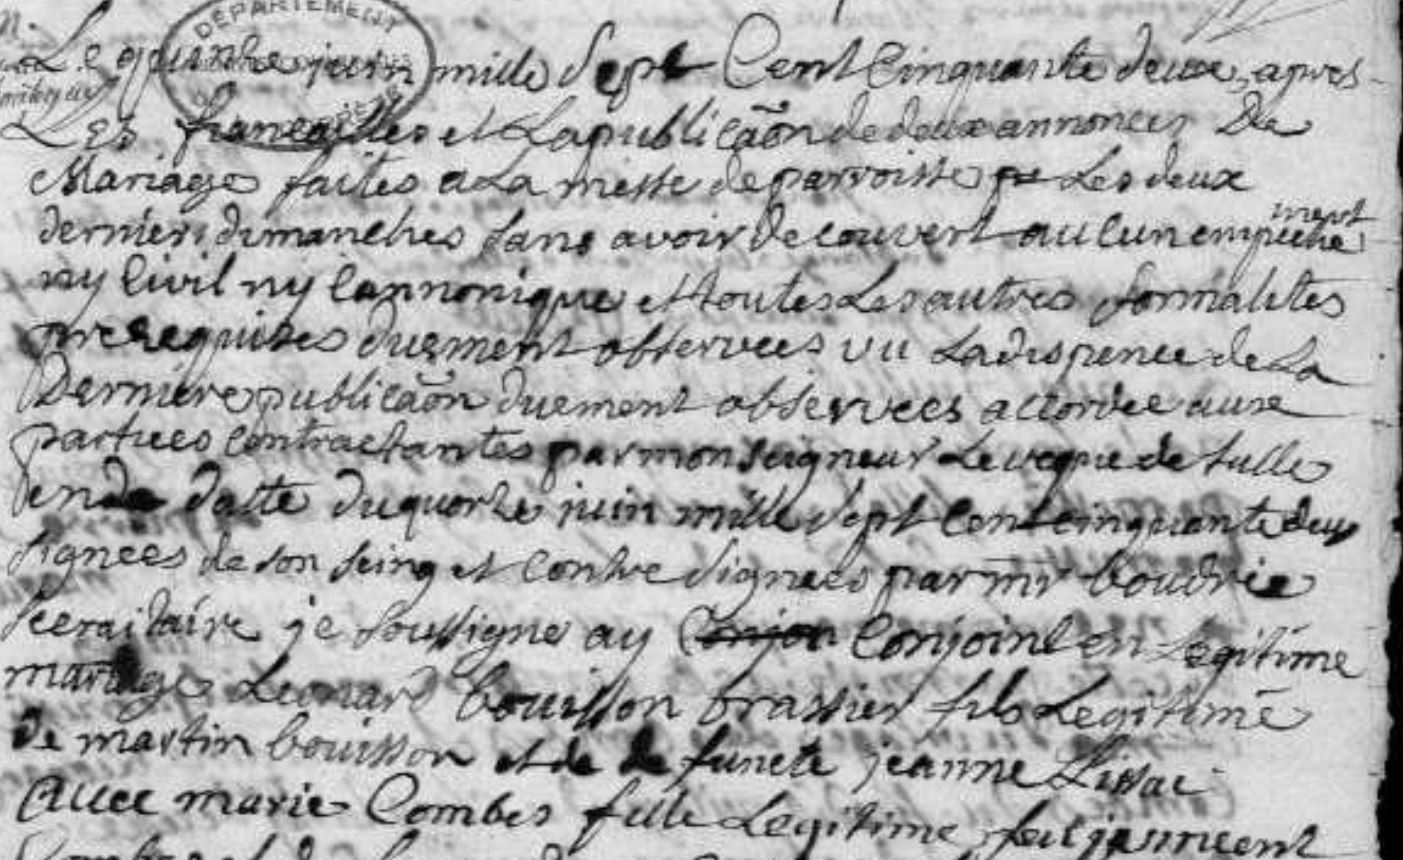 DEPARTEMENT
Le quinze juin mille sept Cent Cinquante deux, apres
Les fiancailles et La publicãon de deux annonces De
Mariage faites a La messe de parroisse Les deux
derniers dimanches sans avoir decouvert aucun empeche
ment
ny Civil ny Cannonique et toutes Les autres formalites
prerequises duement observees vu La dispence de La
Derniere publicãon duement observees accordee aux
partiees contractantes par monseigneur Leveque de tulle
en datte du quorze juin mille sept cent cinquante deux
signees de son seing et contre signees par mr boudrie
secraitaire je soussigne ay Conjoin Conjoint en Legitime
mariage Leonard bouisson brassier fils Legitime
de martin bouisson et de defuncte jeanne Lissac
avec marie Combes fille Legitime